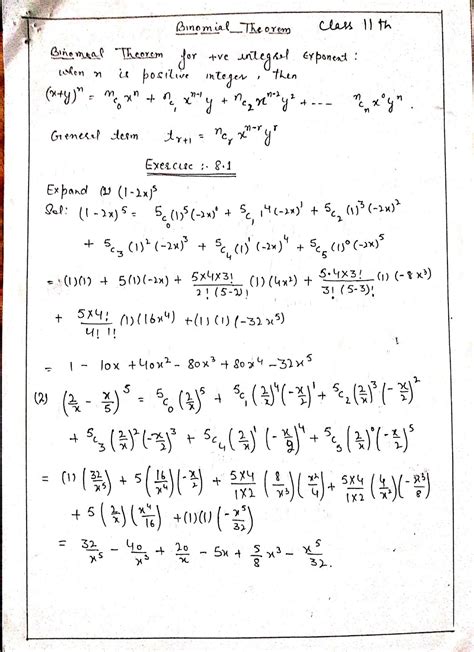 Binomial Theorem Class 11 th
Binomial Theorem for +ve integral Exponent :
when n is positive integer, then
(x+y)ⁿ = ⁿC₀xⁿ + ⁿC₁ xⁿ⁻¹y + ⁿC₂xⁿ⁻²y² + --- ⁿCₙx⁰yⁿ.
General term tᵣ₊₁ = ⁿCᵣ xⁿ⁻ʳyʳ
Exercise :- 8.1
Expand (1) (1-2x)⁵
Sol: (1-2x)⁵ = ⁵C₀(1)⁵(-2x)⁰ + ⁵C₁ 1⁴(-2x)¹ + ⁵C₂(1)³(-2x)²
+ ⁵C₃(1)²(-2x)³ + ⁵C₄(1)¹(-2x)⁴ + ⁵C₅(1)⁰(-2x)⁵
= (1)(1) + 5(1)(-2x) + 5×4×3!/2!(5-2)! (1)(4x²) + 5·4×3!/3!(5-3)! (1)(-8x³)
+ 5×4!/4! 1! (1)(16x⁴) + (1)(1)(-32x⁵)
= 1 - 10x + 40x² - 80x³ + 80x⁴ - 32x⁵
(2) (2/x - x/5)⁵ = ⁵C₀(2/x)⁵ + ⁵C₁(2/x)⁴(-x/2)¹ + ⁵C₂(2/x)³(-x/2)²
+ ⁵C₃(2/x)²(-x/2)³ + ⁵C₄(2/x)¹(-x/2)⁴ + ⁵C₅(2/x)⁰(-x/2)⁵
= (1)(32/x⁵) + 5(16/x⁴)(-x/2) + 5×4/1×2 (8/x³)(x²/4) + 5×4/1×2 (4/x²)(-x³/8)
+ 5(2/x)(x⁴/16) + (1)(1)(-x⁵/32)
= 32/x⁵ - 40/x³ + 20/x - 5x + 5/8 x³ - x⁵/32.